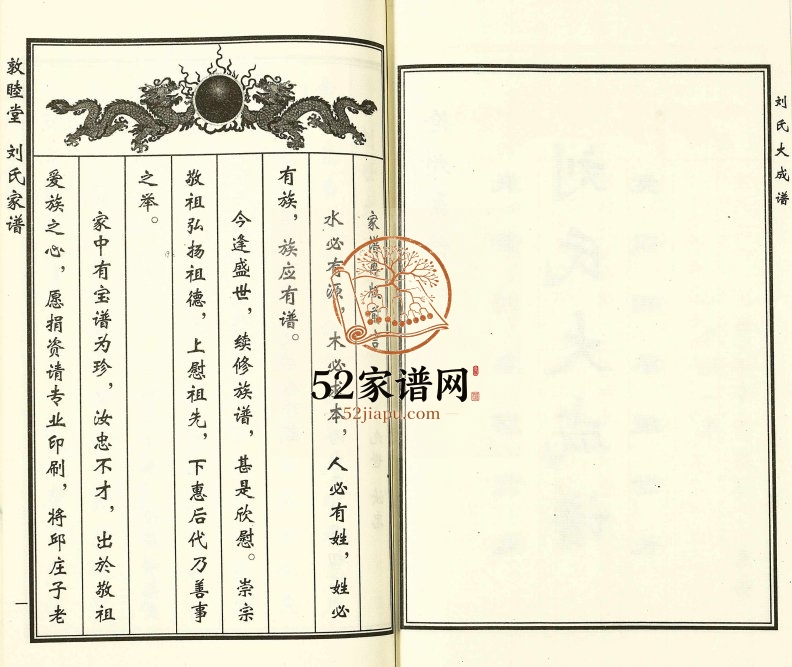 刘氏大成谱
家谱再版前言
水必有源，木必有本，人必有姓，姓必
有族，族应有谱。
今逢盛世，续修族谱，甚是欣慰。崇宗
敬祖弘扬祖德，上慰祖先，下惠后代乃善事
之举。
家中有宝谱为珍，汝忠不才，出於敬祖
爱族之心，愿捐资请专业印刷，将邱庄子老
敦睦堂 刘氏家谱
一
52家谱网
52jiapu.com